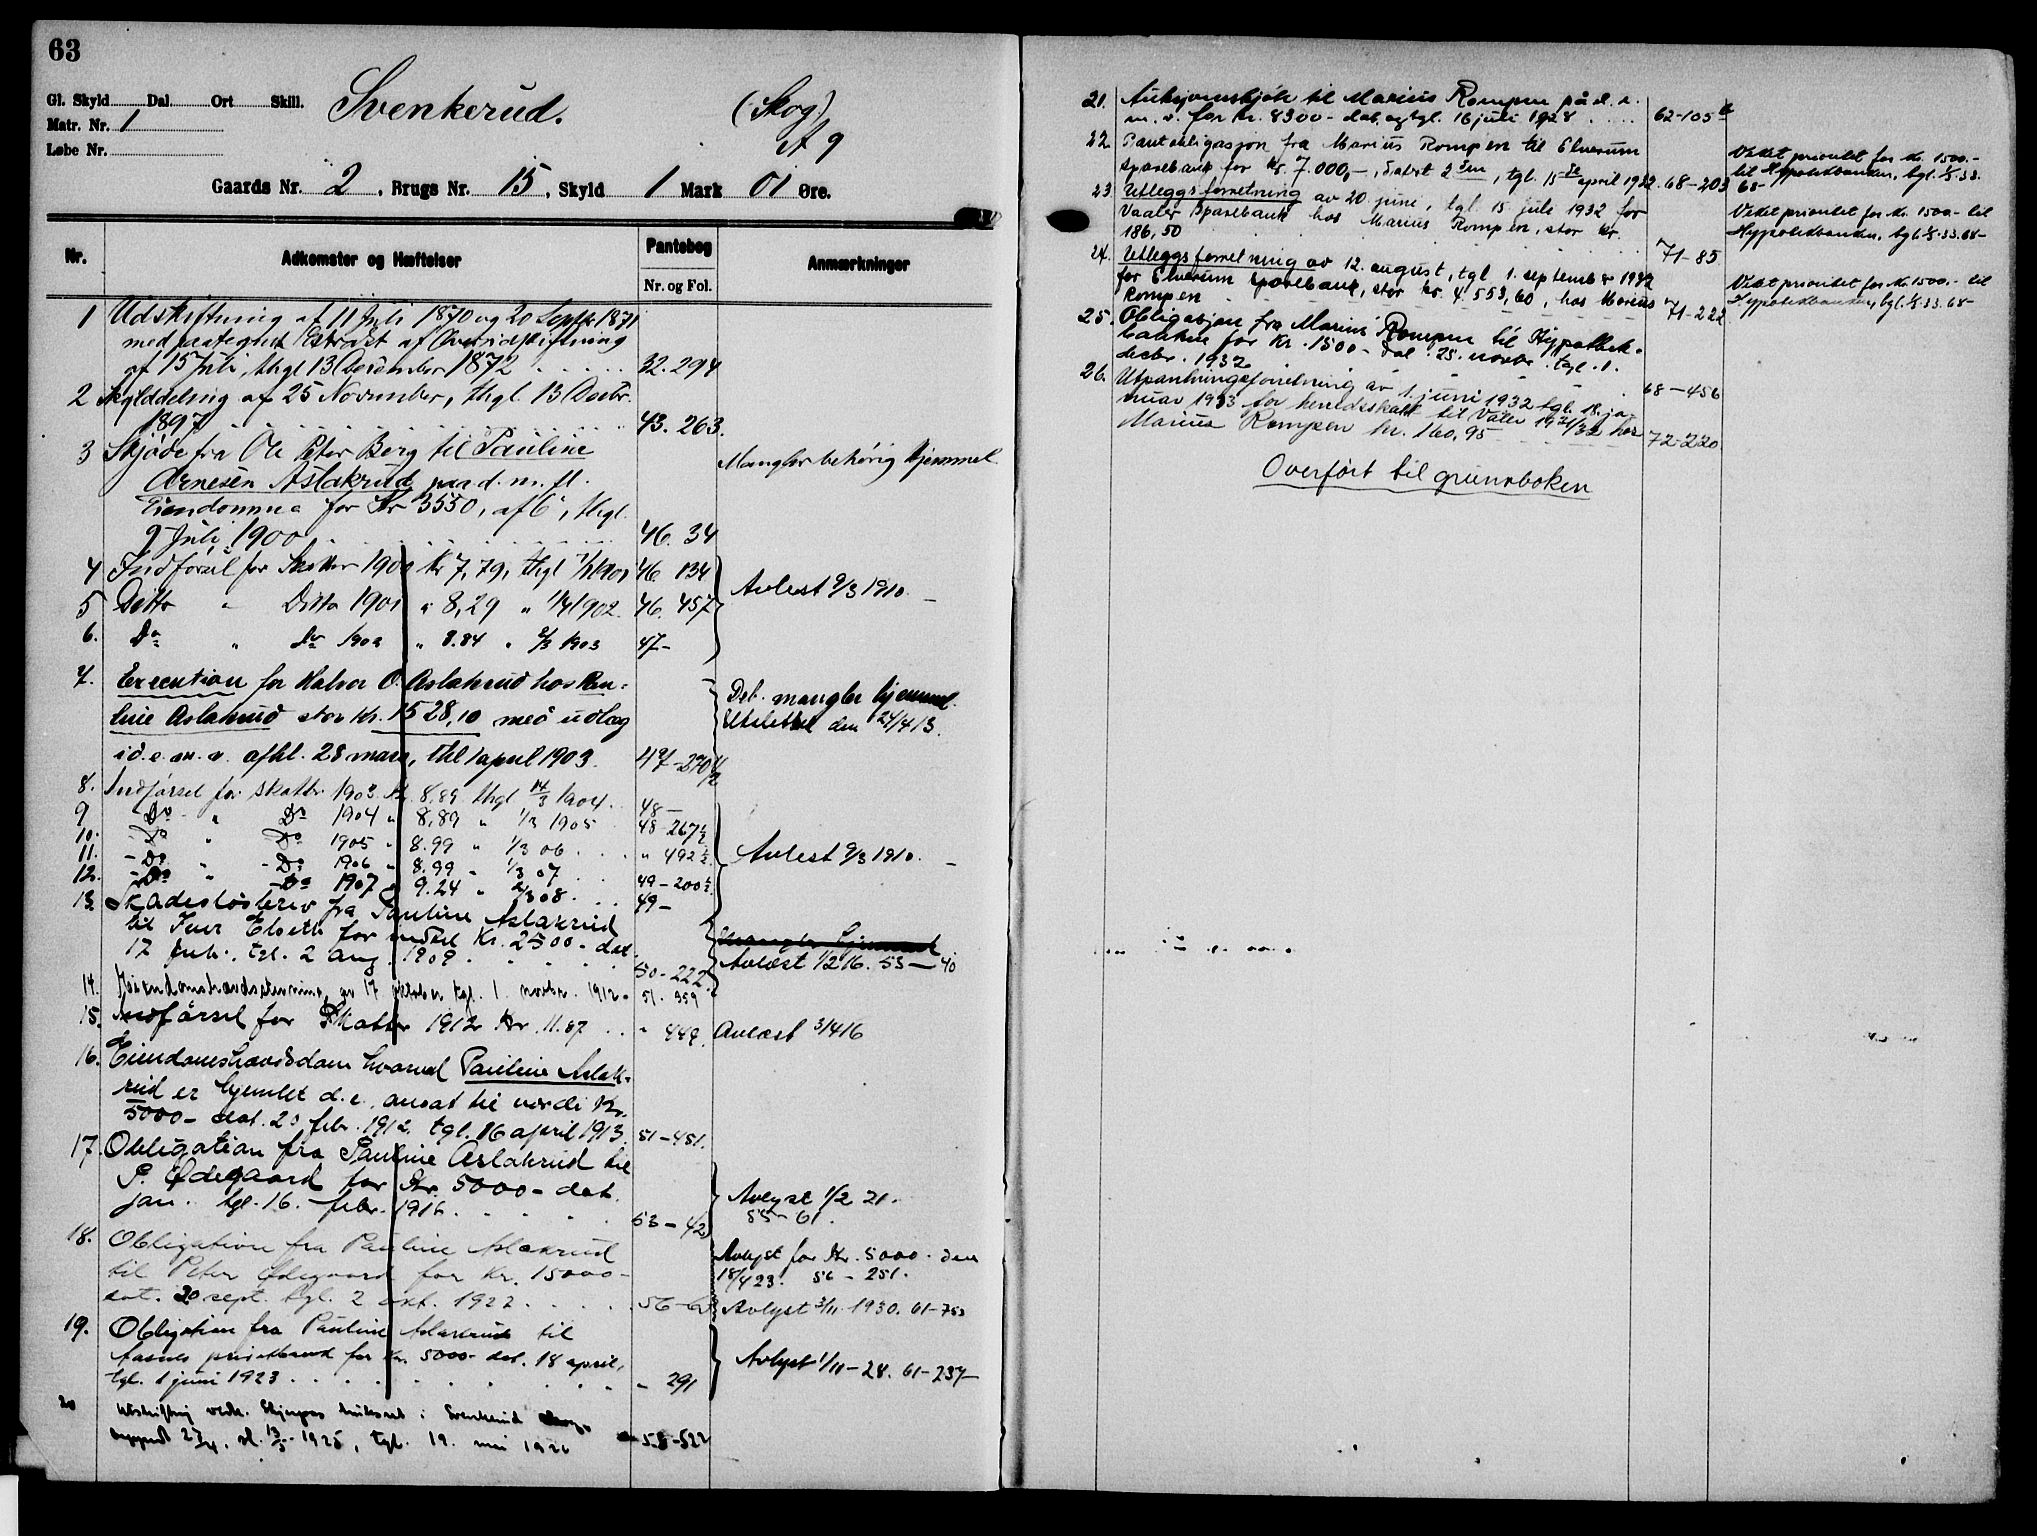 63
Gl. Skyld Dal. Ort Skill.
Svenkerud.
(Skog)
Matr. Nr. 1
A 9
Løbe Nr.
Gaards Nr. 2, Brugs Nr. 15, Skyld 1 Mark 01 Øre.
Nr.
Adkomster og Hæftelser
Pantebog
Nr. og Fol.
Anmærkninger
1 Udskiftning af 11 Juli 1870 og 20 Septbr 1871
med paategnet Extrast af Overudskiftning
af 15 Juli, thgl 13 December 1872 32. 294
2 Skylddeling af 25 November, thgl. 13 Decbr.
1897 43. 263.
3 Skjøde fra Ole Peter Berg til Pauline
Mangler behörig Hjemmel
Arnesen Aslakrud paa d. m. fl.
Eiendomme for Kr 3550, af 6, thgl.
9 Juli 1900 46. 34
4 Indförsel for Skatter 1900 Kr 7,79, thgl 1/3 1901 46 134
5 Ditto " Ditto 1901 " 8,29 " 1/4 1902. 46. 457
Avlest 9/3 1910.
6. Do " Do 1902 " 8.84 " 2/3 1903 47-
7. Execution for Halvor O. Aslakrud hos Pau=
line Aslakrud stor Kr. 1528,10 med udlæg
i d. e. m. v. afhl. 28 mars, thl 1 april 1903. 47-270 1/2
Deb. mangler hjemmel.
Utslettet den 24/4 13.
8. Indførsel for skatter 1903 Kr. 8.89 thgl 14/3 1904. 48-
9 Do " Do 1904 " 8,89 " 1/3 1905 48-267 1/2
10. - Do " Do 1905 " 8.99 " 1/3 06. " 492 1/2
11. - Do " - Do 1906 " 8.99 " 1/3 07 49-200 1/2
Avlest 9/3 1910.
12. - Do " - Do 1907 " 9.24 " 2/3 08. 49-
13. Skadesløsbrev fra Pauline Aslakrud
til Iver Elseth for indtil Kr. 2500- dat.
17 juli, tgl. 2 aug. 1909. 50-222.
Mangler hjemmel
Avlæst 1/2 16. 53-40
14. Eiendomshævdsstevning av 17 oktober tgl. 1. novbr. 1912. 51. 359
15. Indførsel for Skatter 1912 Kr. 11.87 " 449.
Avlæst 3/4 16
16. Eiendomshævdsdom hvorved Pauline Aslak-
rud er hjemlet d. e. ansat til værdi Kr.
5000- dat. 20 febr. 1912. tgl. 16 april 1913. 51-451.
17. Obligation fra Pauline Aslakrud til
P. Ødegaard for Kr. 5000- dat.
jan. tgl. 16. febr. 1916. 53-42
Avlyst 1/2 21.
55-61.
18. Obligation fra Pauline Aslakrud
til Peter Ødegaard for Kr. 15000-
dat. 30 sept. tgl. 2 okt. 1922. 56-62
Avlyst for Kr. 5000- den
18/4 23. 56-251.
Avlyst 3/11 1930. 61-753
19. Obligation fra Pauline Aslakrud til
Aasnes privatbank for Kr. 5000- dat. 18 april,
tgl. 1 juni 1923 - 291
Avlyst 1/11-28. 61-237-
20 Utskiftning vedk. bruksret i Svenkerud skog,
27/4, sl. 13/5 1925, tgl. 19. mai 1926 58-522
21. Auksjonsskjøte til Marius Rompen på d. e.
m. v. for kr. 8300- dat. og tgl. 16 juli 1928 62-105
22. Pantobligasjon fra Marius Rompen til Elverum
sparebank for kr. 7.000,-, datert 2den, tgl. 15de april 1932. 68-203
Veket prioritet for kr. 1500.-
til Hypotekbanken, tgl. 1/5.33.
68-
23. Utleggsforretning av 20. juni, tgl. 15. juli 1932 for
Vaaler Sparebank hos Marius Rompen, stor kr.
186,50 71-85
Veket prioritet for kr. 1500- til
Hypotekbanken, tgl. 1/5.33. 68-
24. Utleggsforretning av 12. august, tgl. 1. september 1932
for Elverum sparebank, stor kr. 4.553,60, hos Marius
Rompen 71-222
Veket prioritet for kr. 1500.- til
Hypotekbanken tgl. 1/5.33. 68-
25. Obligasjon fra Marius Rompen til Hypotek-
banken for kr. 1500- dat. 25. novbr. tgl. 1.
desbr. 1932 68-456
26. Utpantningsforretning av 1. juni 1932 tgl. 18. ja-
nuar 1933 for herredsskatt til Våler 1931/32 hos
Marius Rompen kr. 160,95 72-220
Overført til grunnboken